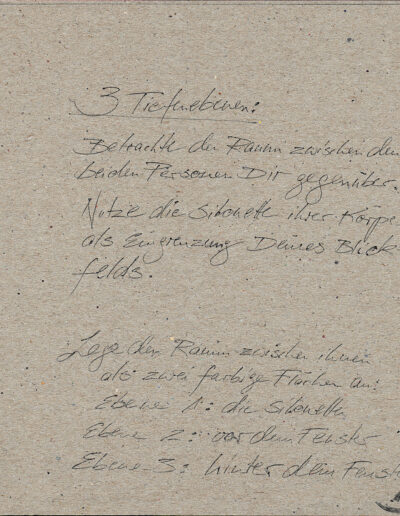 3 Tiefenebenen:
Betrachte den Raum zwischen den
beiden Personen Dir gegenüber.
Nutze die Silouette ihrer Körpe
als Eingrenzung Deines Blick
felds.
Lege den Raum zwischen ihnen
als zwei farbige Flächen an:
Ebene 1: die Silouetten
Ebene 2: vor dem Fenster
Ebene 3: hinter dem Fenste